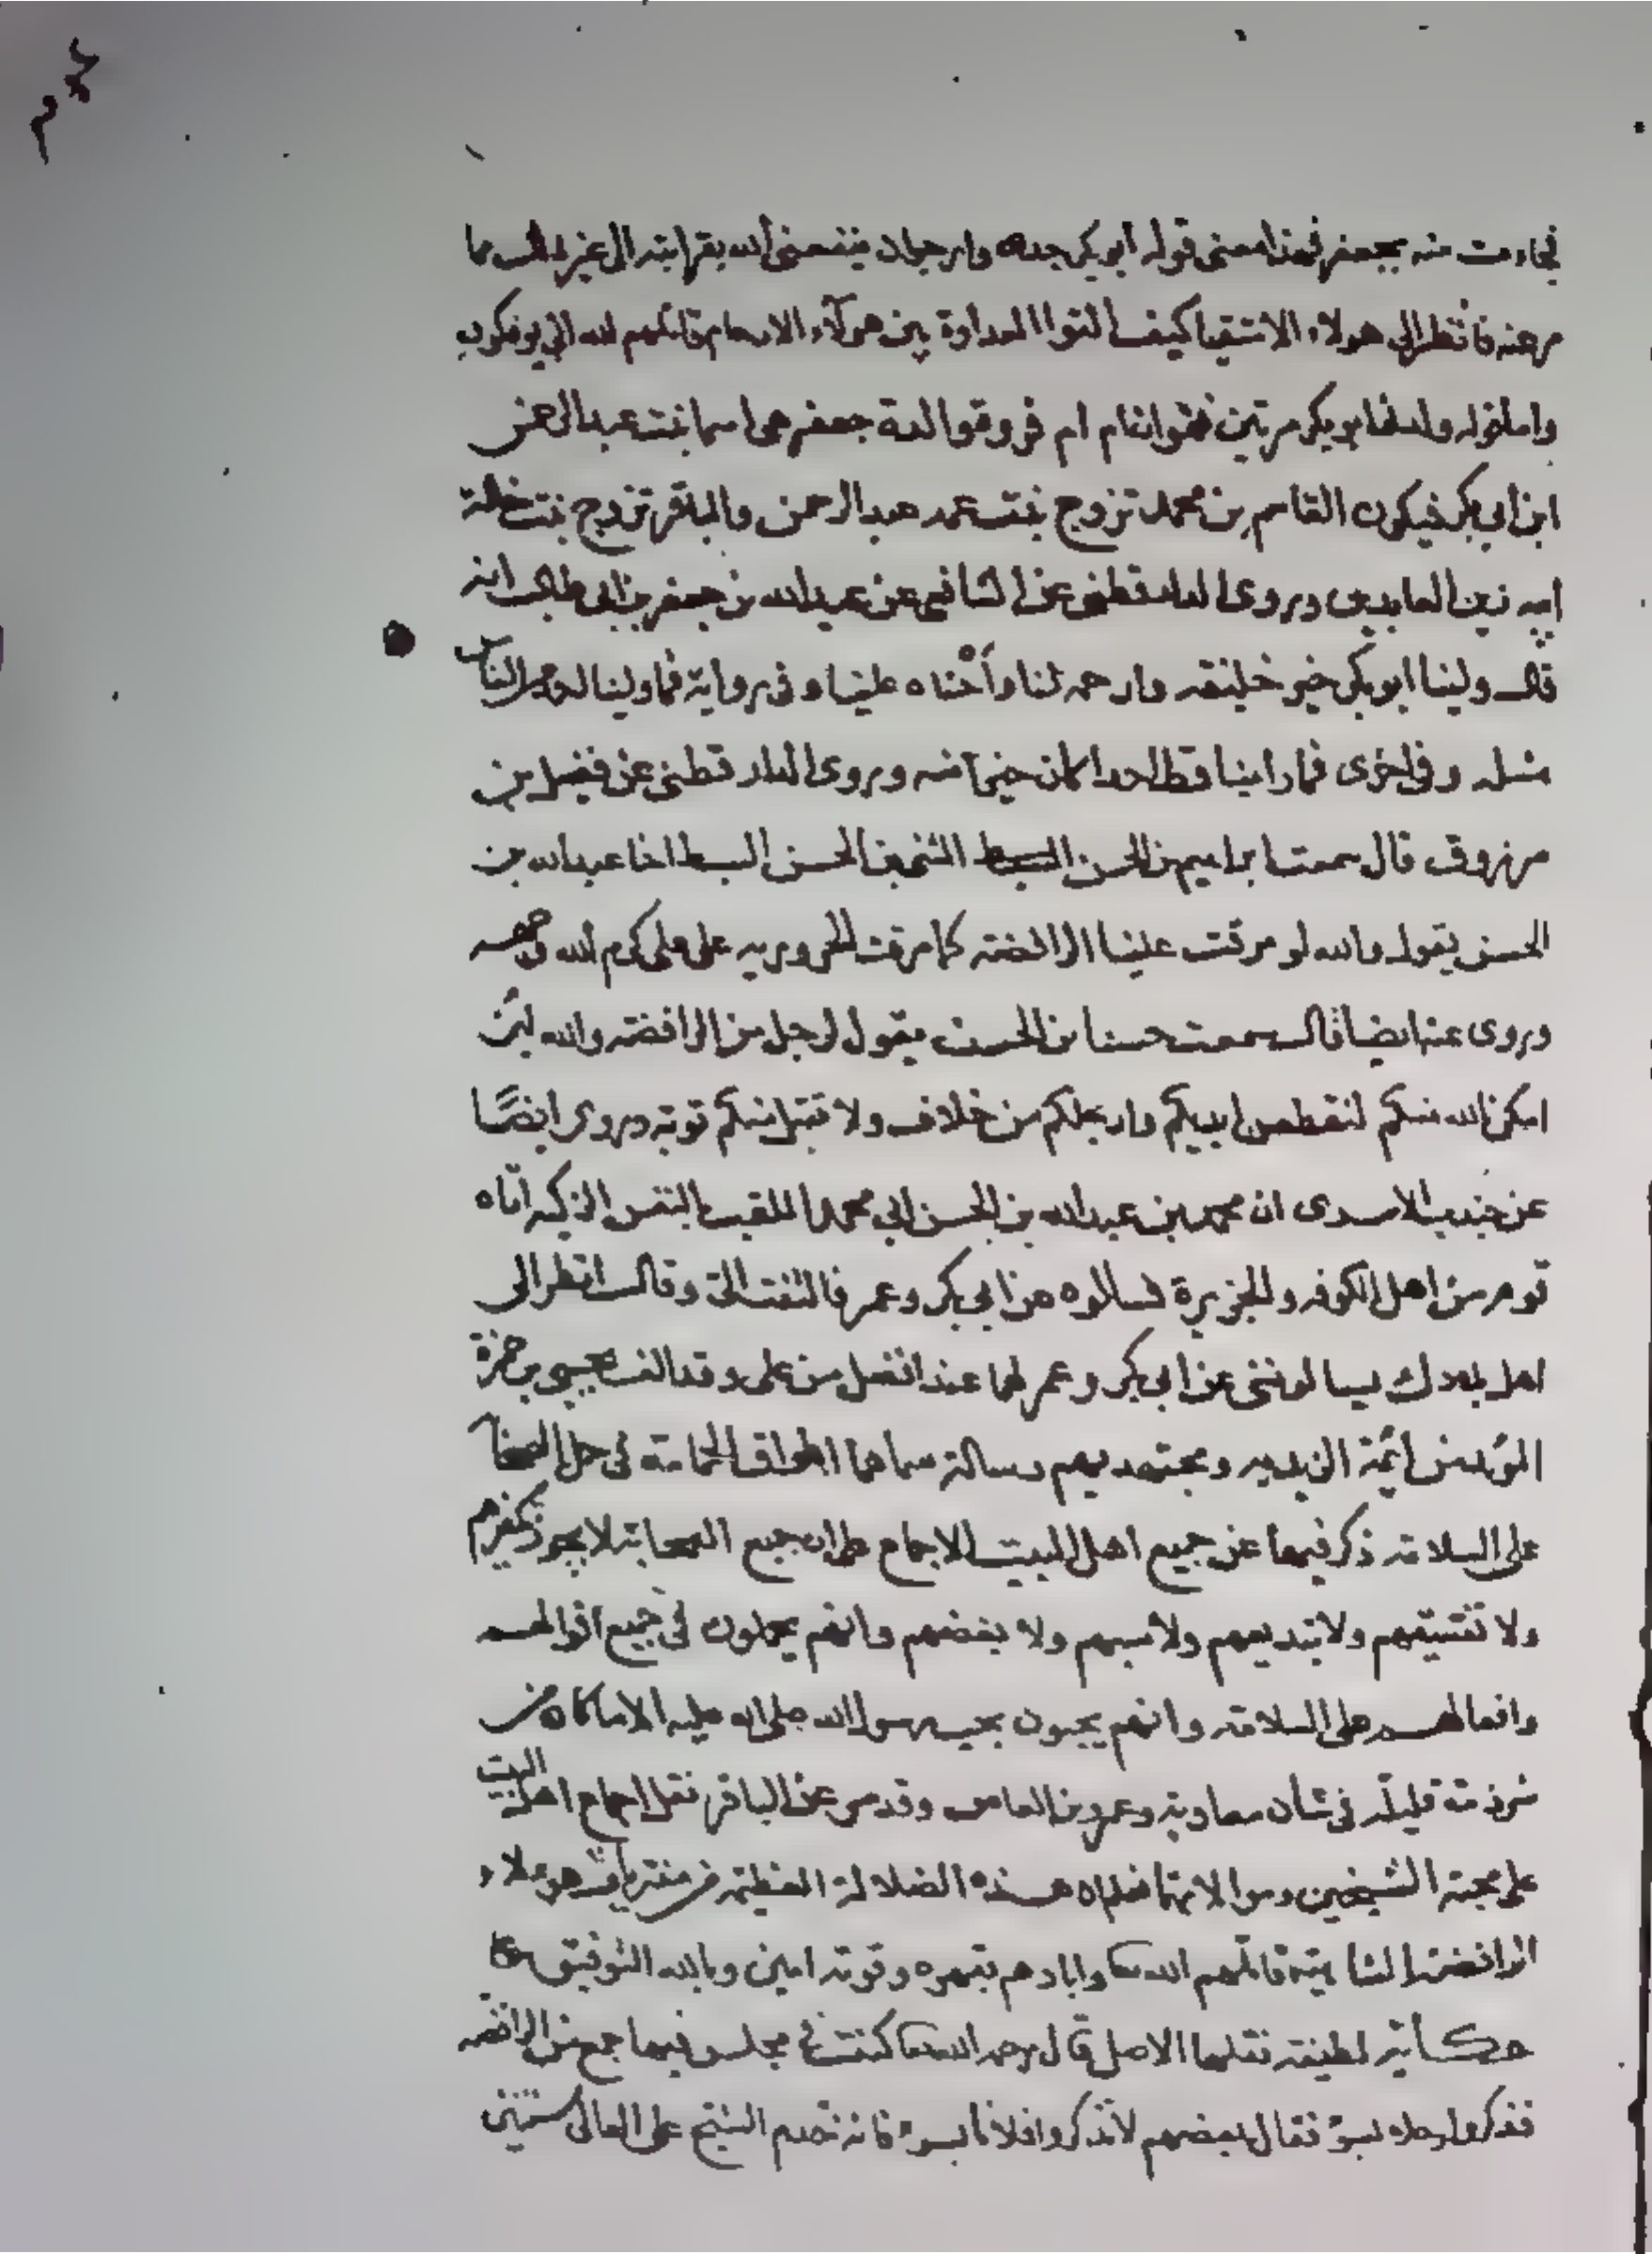 فجاءت منه بجعفر فهذا معنى قوله أبو بكر جده وارجوان ينفعنى الله بقرابته الى غير ذلك مما
مر عنه فانظر الى هولاء الاشقيا كيف القوا العداوة بين هولآء الارحام قاتلهم لله انى يوفكون
واما قوله ولدنى ابو بكر مرتين فهو ان ام ام فروة والدة جعفر هى اسما بنت عبد الرحمن
ابن أبي بكر فيكون القاسم بن محمد تزوج بنت عمه عبد الرحمن والباقر تزوج بنت خالة
أبيه زين العابدين وروى الدارقطنى عن الشافعى عن عبد الله بن جعفر بن ابى طالب انه
قال ولينا ابو بكر خير خليفه وارحمه لنا وأحناه علينا وفى رواية فما ولينا احد من الناس
مثله وفى اخرى فما راينا قط احدا كان خيرا منه وروى الدارقطنى عن فضيل بن
مرزوق قال سمعت ابراهيم بن الحسن السبط المثنى بن الحسن السبط اخا عبد الله بن
الحسن يقول والله لو مرقت علينا الرافضه كما مرقت الحروريه على على كرم الله وجهه
وروى عنه ايضا قال سمعت حسنا بن الحسن يقول لرجل من الرافضه والله لئن
امكن الله منكم لنقطعن ايديكم وارجلكم من خلاف ولا تقبل منكم توبه وروى ايضًا
عن جندب الاسدى ان محمد بن عبد الله بن الحسن ابى محمد الملقب بالنفس الزكيه اتاه
قوم من اهل الكوفه والجزيرة فسالوه عن ابى بكر وعمر فالتفت الىّ وقال انظر الى
اهل بلادك يسالوننى عن ابى بكر وعمر لهما عندى افضل من على وقد الف يحيى بن حمزة
المؤيد من أئمة الزيديه ومجتهديهم رسالة سماها اطواق الحمامه فى حمل الصحابة
على السلامه ذكر فيها عن جميع اهل البيت الاجماع على ان جميع الصحابة لا يجوز تكفيرهم
ولا تفسيقهم ولا تبديعهم ولا سبهم ولا بغضهم وانهم يحملون فى جميع اقوالهم
وافعالهم على السلامه وانهم يحبون بحب رسول الله صلى الله عليه الا ما كان من
شرذمة قليله فى شأن معاوية وعمرو بن العاص وقد مر عن الباقر نقل اجماع اهل البيت
على محبة الشيخين وموالاتهما فعلم ان هذه الضلالة العظيمه من مفتريات هوءلاء
الرافضه قاتلهم الله وابادهم بقهره وقوته امين وبالله التوفيق
حكاية لطيفه نقلها الاصل قال رحمه الله كنت فى مجلس فيها جمع من الرافضه
فذكروا رجلا بسوء فقال بعضهم لا تذكروا فلانا بسوء فانه تقدم الشيخ على